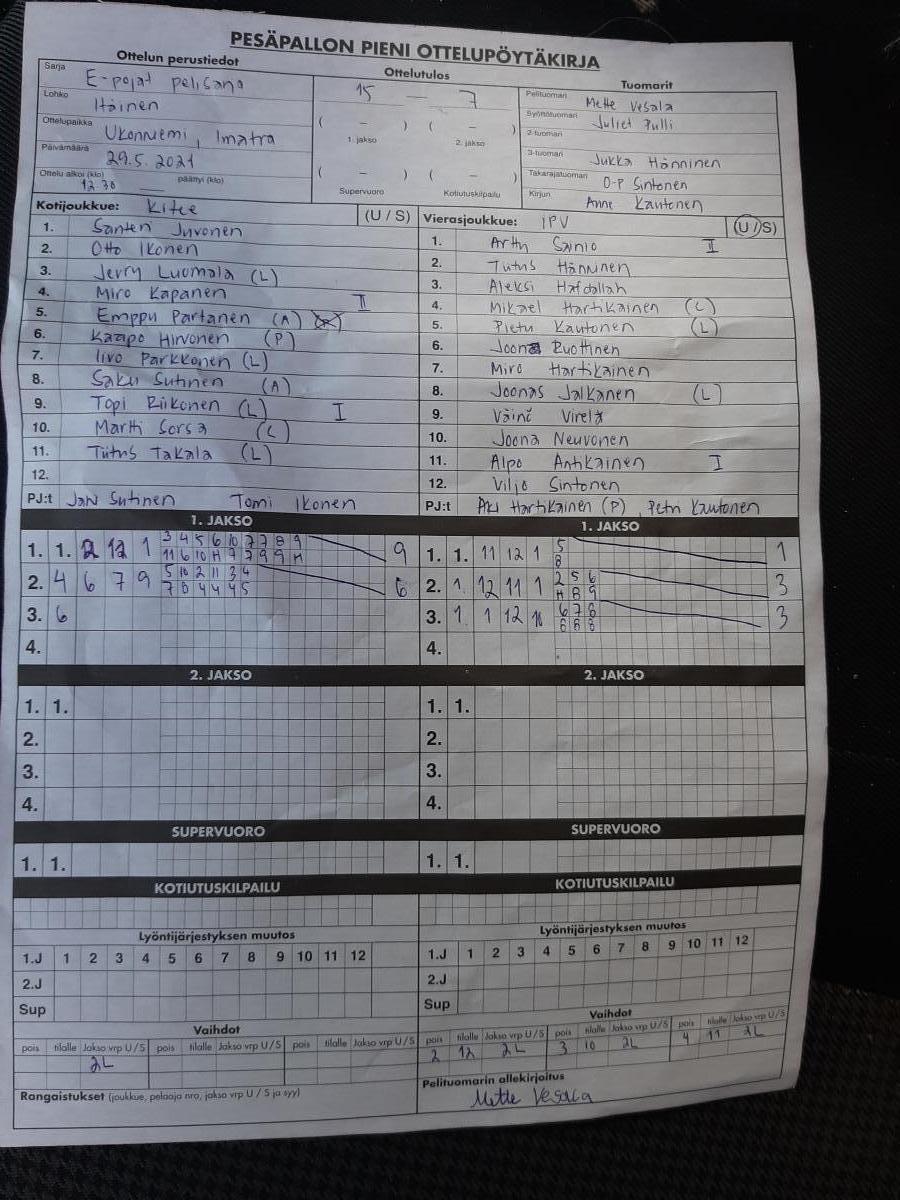 PESÄPALLON PIENI OTTELUPÖYTÄKIRJA
Ottelun perustiedot
Ottelutulos
Tuomarit
Sarja E-pojat pelisana
Lohko Itäinen
Ottelupaikka Ukonniemi, Imatra
Päivämäärä 29.5.2021
Ottelu alkoi (klo) 12.30 päättyi (klo)
15 — 7
( – ) ( – )
1. jakso 2. jakso
( – ) ( – )
Supervuoro Kotiutuskilpailu
Pelituomari Mette Vesala
Syöttötuomari Juliet Pulli
2-tuomari
3-tuomari Jukka Hänninen
Takarajatuomari O-P Sintonen
Kirjuri Anne Kautonen
Kotijoukkue: Kitee (U / S)
1. Santeri Juvonen
2. Otto Ikonen
3. Jerry Luomala (L)
4. Miro Kapanen
5. Emppu Partanen (A) II
6. Kaapo Hirvonen (P)
7. Iivo Parkkonen (L)
8. Saku Sutinen (A)
9. Topi Riikonen (L) I
10. Martti Sorsa (L)
11. Tiitus Takala (L)
12.
PJ:t Jani Sutinen Tomi Ikonen
Vierasjoukkue: IPV (U / S)
1. Arttu Sainio II
2. Tuitus Hänninen
3. Aleksi Hafdallah
4. Mikael Hartikainen (L)
5. Pietu Kautonen (L)
6. Joona Ruottinen
7. Miro Hartikainen
8. Joonas Jalkanen (L)
9. Väinö Virelä
10. Joona Neuvonen
11. Alpo Antikainen I
12. Viljo Sintonen
PJ:t Aki Hartikainen (P), Petri Kautonen
1. JAKSO
1. 1. 2 12 1 3 4 5 6 10 7 7 8 9 9
11 6 10 H 9 7 9 9 H
2. 4 6 7 9 5 10 2 11 3 4 6
7 8 4 4 4 5
3. 6
4.
1. JAKSO
1. 1. 11 12 1 5 1
8
2. 1. 12 11 1 2 5 6 3
H 8 9
3. 1. 1 12 11 6 7 8 3
8 8 8
4.
2. JAKSO
1. 1.
2.
3.
4.
2. JAKSO
1. 1.
2.
3.
4.
SUPERVUORO
1. 1.
SUPERVUORO
1. 1.
KOTIUTUSKILPAILU
KOTIUTUSKILPAILU
Lyöntijärjestyksen muutos
1.J 1 2 3 4 5 6 7 8 9 10 11 12
2.J
Sup
Lyöntijärjestyksen muutos
1.J 1 2 3 4 5 6 7 8 9 10 11 12
2.J
Sup
Vaihdot
pois tilalle Jakso vrp U / S pois tilalle Jakso vrp U / S pois tilalle Jakso vrp U / S
2L
Vaihdot
pois tilalle Jakso vrp U / S pois tilalle Jakso vrp U / S pois tilalle Jakso vrp U / S
2 12 2L 3 10 2L 4 11 2L
Rangaistukset (joukkue, pelaaja nro, jakso vrp U / S ja syy)
Pelituomarin allekirjoitus
Mette Vesala